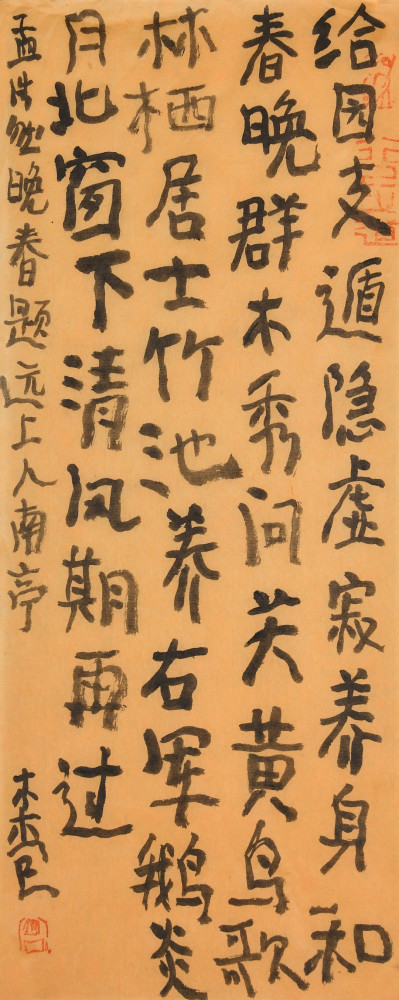 给园支遁隐虚寂养身和
春晚群木秀问关黄鸟歌
林栖居士竹池养右军鹅炎
月北窗下清风期再过
孟浩然晚春题远上人南亭